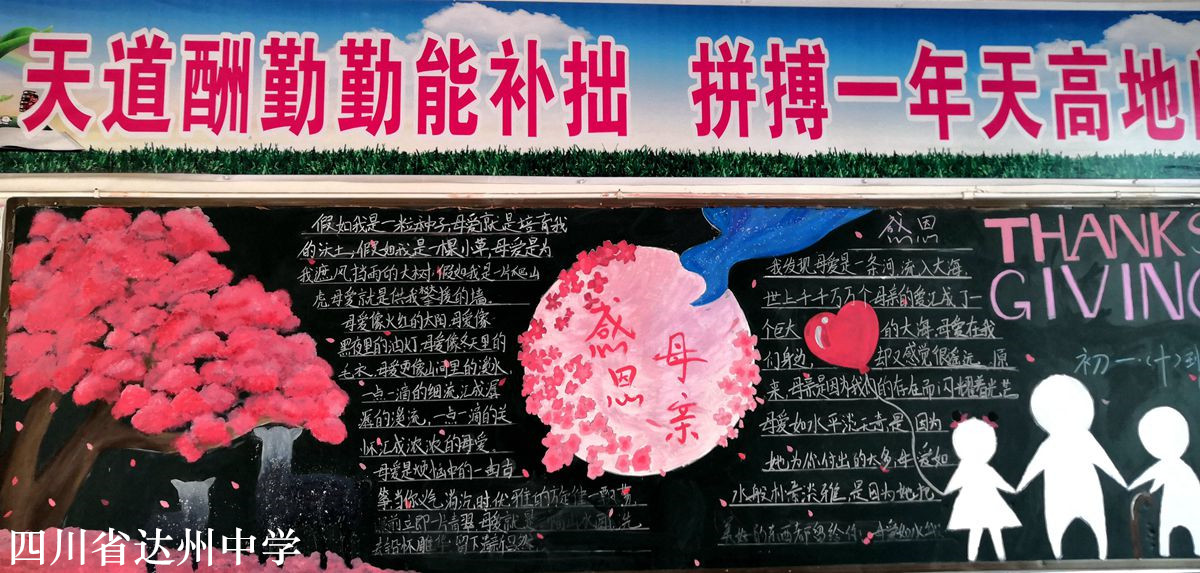 天道酬勤勤能补拙 拼搏一年天高地
假如我是一粒种子,母爱就是培育我
的沃土,假如我是一棵小草,母爱是为
我遮风挡雨的大树,假如我是一片爬山
虎母爱就是供我攀援的墙.
母爱像火红的太阳,母爱像
黑夜里的油灯,母爱像冬天里的
毛衣,母爱更像山间里的溪水,
一点一滴的细流汇成潺
潺的溪流,一点一滴的关
怀汇成浓浓的母爱.
母爱是烦恼中的一曲
等当你
感恩
母亲
感恩
我发现母爱是一条河,流入大海,
世上千千万万个母亲的爱汇成了一
个巨大的大海,母爱在我
们身边,却又感觉很遥远,原
来,母亲是因为我们的存在而闪耀着光芒
母爱如水平淡无奇是因为
她为你付出的太多母爱如
水般朴素淡雅是因为她把
美好的东西都留给你
THANKS
GIVING
初一
四川省达州中学